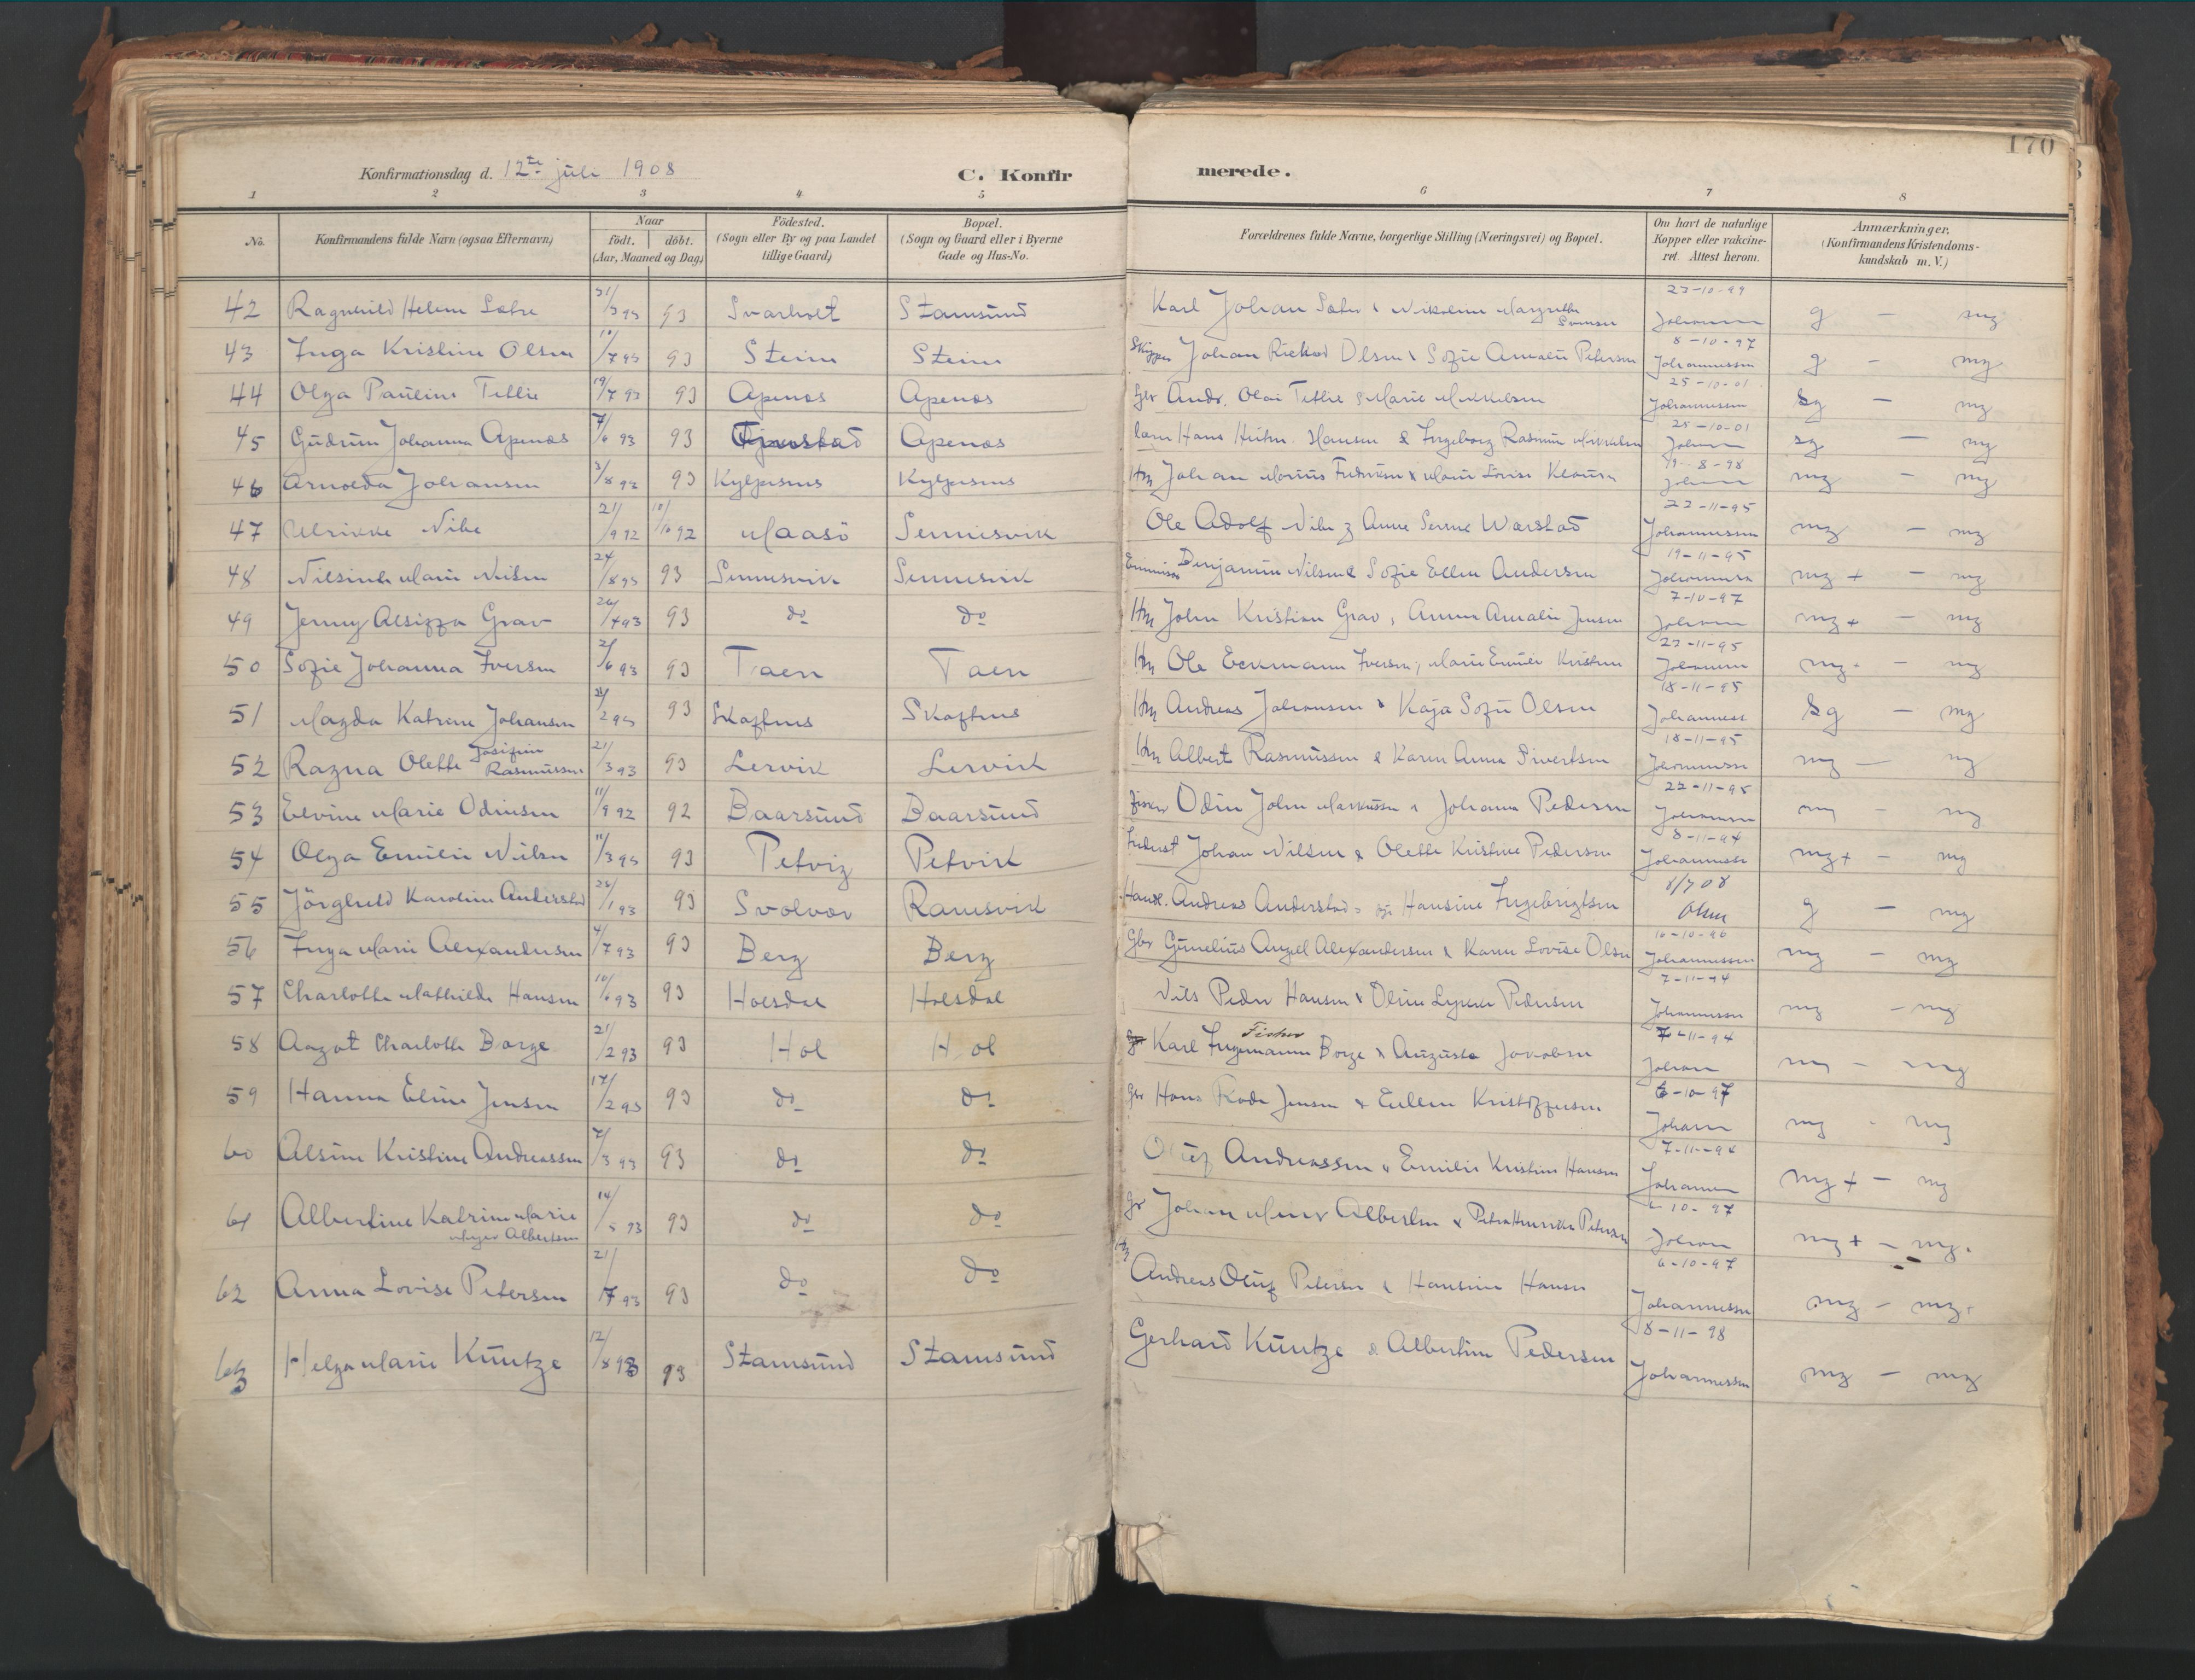 170
Konfirmationsdag d. 12te juli 1908
C. Konfirmerede.
1 2 3 4 5 6 7 8
No. Konfirmandens fulde Navn (ogsaa Efternavn) Naar födt. döbt. (Aar, Maaned og Dag) Födested. (Sogn eller By og paa Landet tillige Gaard) Bopæl. (Sogn og Gaard eller i Byerne Gade og Hus-No. Forældrenes fulde Navne, borgerlige Stilling (Næringsvei) og Bopæl. Om havt de naturlige Kopper eller vakcineret. Attest herom. Anmærkninger, (Konfirmandens Kristendomskundskab m. V.)
42 Ragnhild Helene Sætre 93 Svarholt Stamsund Karl Johan Sætre & Nikoline Margrethe g - mg
43 Inga Kristine Olsen 10/7 93 93 Steine Steine Skipper Johan Rickard Olsen & Sofie Amalie Petersen 8-10-97 Johannessen g - mg
44 Olga Pauline Tetlie 19/7 93 93 Apenæs Apenæs Gbr Andr. Olai Tetlie & Marie Mikkelsen 25-10-01 Johannessen sg - mg
45 Gudrun Johanna Apenæs 7/6 93 93 Apenæs Hans Hansen & Ingeborg 25-10-01 sg - mg
46 Arnolda Johansen 3/8 92 93 Hm Johan Marius & Marie Lovise 19-8-98 mg - mg
47 Ulrikke Nibe 21/9 92 92 Maasö Sennesvik Ole Adolf Nibe & Anne Warstad 22-11-95 Johannessen mg - mg
48 Nilsine Marie Nilsen 24/8 93 93 Sennesvik Sennesvik Benjamin Nilsen & Sofie Ellen Andersen 19-11-95 Johannessen mg + - mg
49 Jenny Alsiffa Grav 93 do do Hm John Kristian Grav, Anna Amalie Jensen 7-10-97 mg + - mg
50 Sofie Johanna Iversen 2/6 93 93 Taen Taen Hm Ole Eckmann Iversen, Marie Emilie 22-11-95 mg - mg
51 Magda Katrine Johansen 93 Skaftnes Skaftnes Hm Andreas Johansen & Kaja Sofie Olsen 18-11-95 sg - mg
52 Ragna Olette Josefine Rasmussen 21/3 93 93 Lervik Lervik Hm Albert Rasmussen & Karen Anna Sivertsen 18-11-95 mg - mg
53 Elvine Marie Odinsen 11/9 92 92 Baarsund Baarsund Fisker Odin John Markussen & Johanna Pedersen 22-11-95 mg - mg
54 Olga Emilie Nilsen 11/3 93 93 Petvig Petvik Johan Nilsen & Olette Kristine Pedersen 8-11-94 Johannessen mg + - mg
55 Jörghild Karoline Anderstad 93 Svolvær Ramsvik Andreas Anderstad Hansine Ingebrigtsen 8/7 08 Olsen g - mg
56 Inga Marie Alexandersen 4/7 93 93 Berg Berg Gbr Gunelius Angel Alexandersen & Karen Lovise Olsen Johannessen mg - mg
57 Charlotte Mathilde Hansen 10/6 93 93 Holsdal Holsdal Nils Peder Hansen & Oline Pedersen 7-11-94 Johannessen mg - mg
58 Aagot Charlotte Borge 21/2 93 93 Hol Hol Karl Ingemann Fisker Borge & Augusta Jakobsen 7-11-94 mg - mg
59 Hanna Eline Jensen 17/2 93 93 do do Gbr Hans Jensen & Ellen Kristoffersen 6-10-97 mg - mg
60 Alsine Kristine Andreassen 7/3 93 93 do do Oluf Andreassen & Emilie Kristine Hansen 7-11-94 mg + - mg
61 Albertine Katrine Marie Meyer Albertsen 14/5 93 93 do do Johan Meyer Albertsen & Petra Henrikke Petersen 6-10-97 mg + - mg.
62 Anna Lovise Petersen 21/7 93 93 do do Andreas Oluf Petersen & Hansine Hansen 6-10-97 Johannessen mg - mg.
63 Helga Marie Küntze 12/8 93 93 Stamsund Stamsund Gerhard Küntze & Albertine Pedersen 18-11-98 Johannessen mg - mg